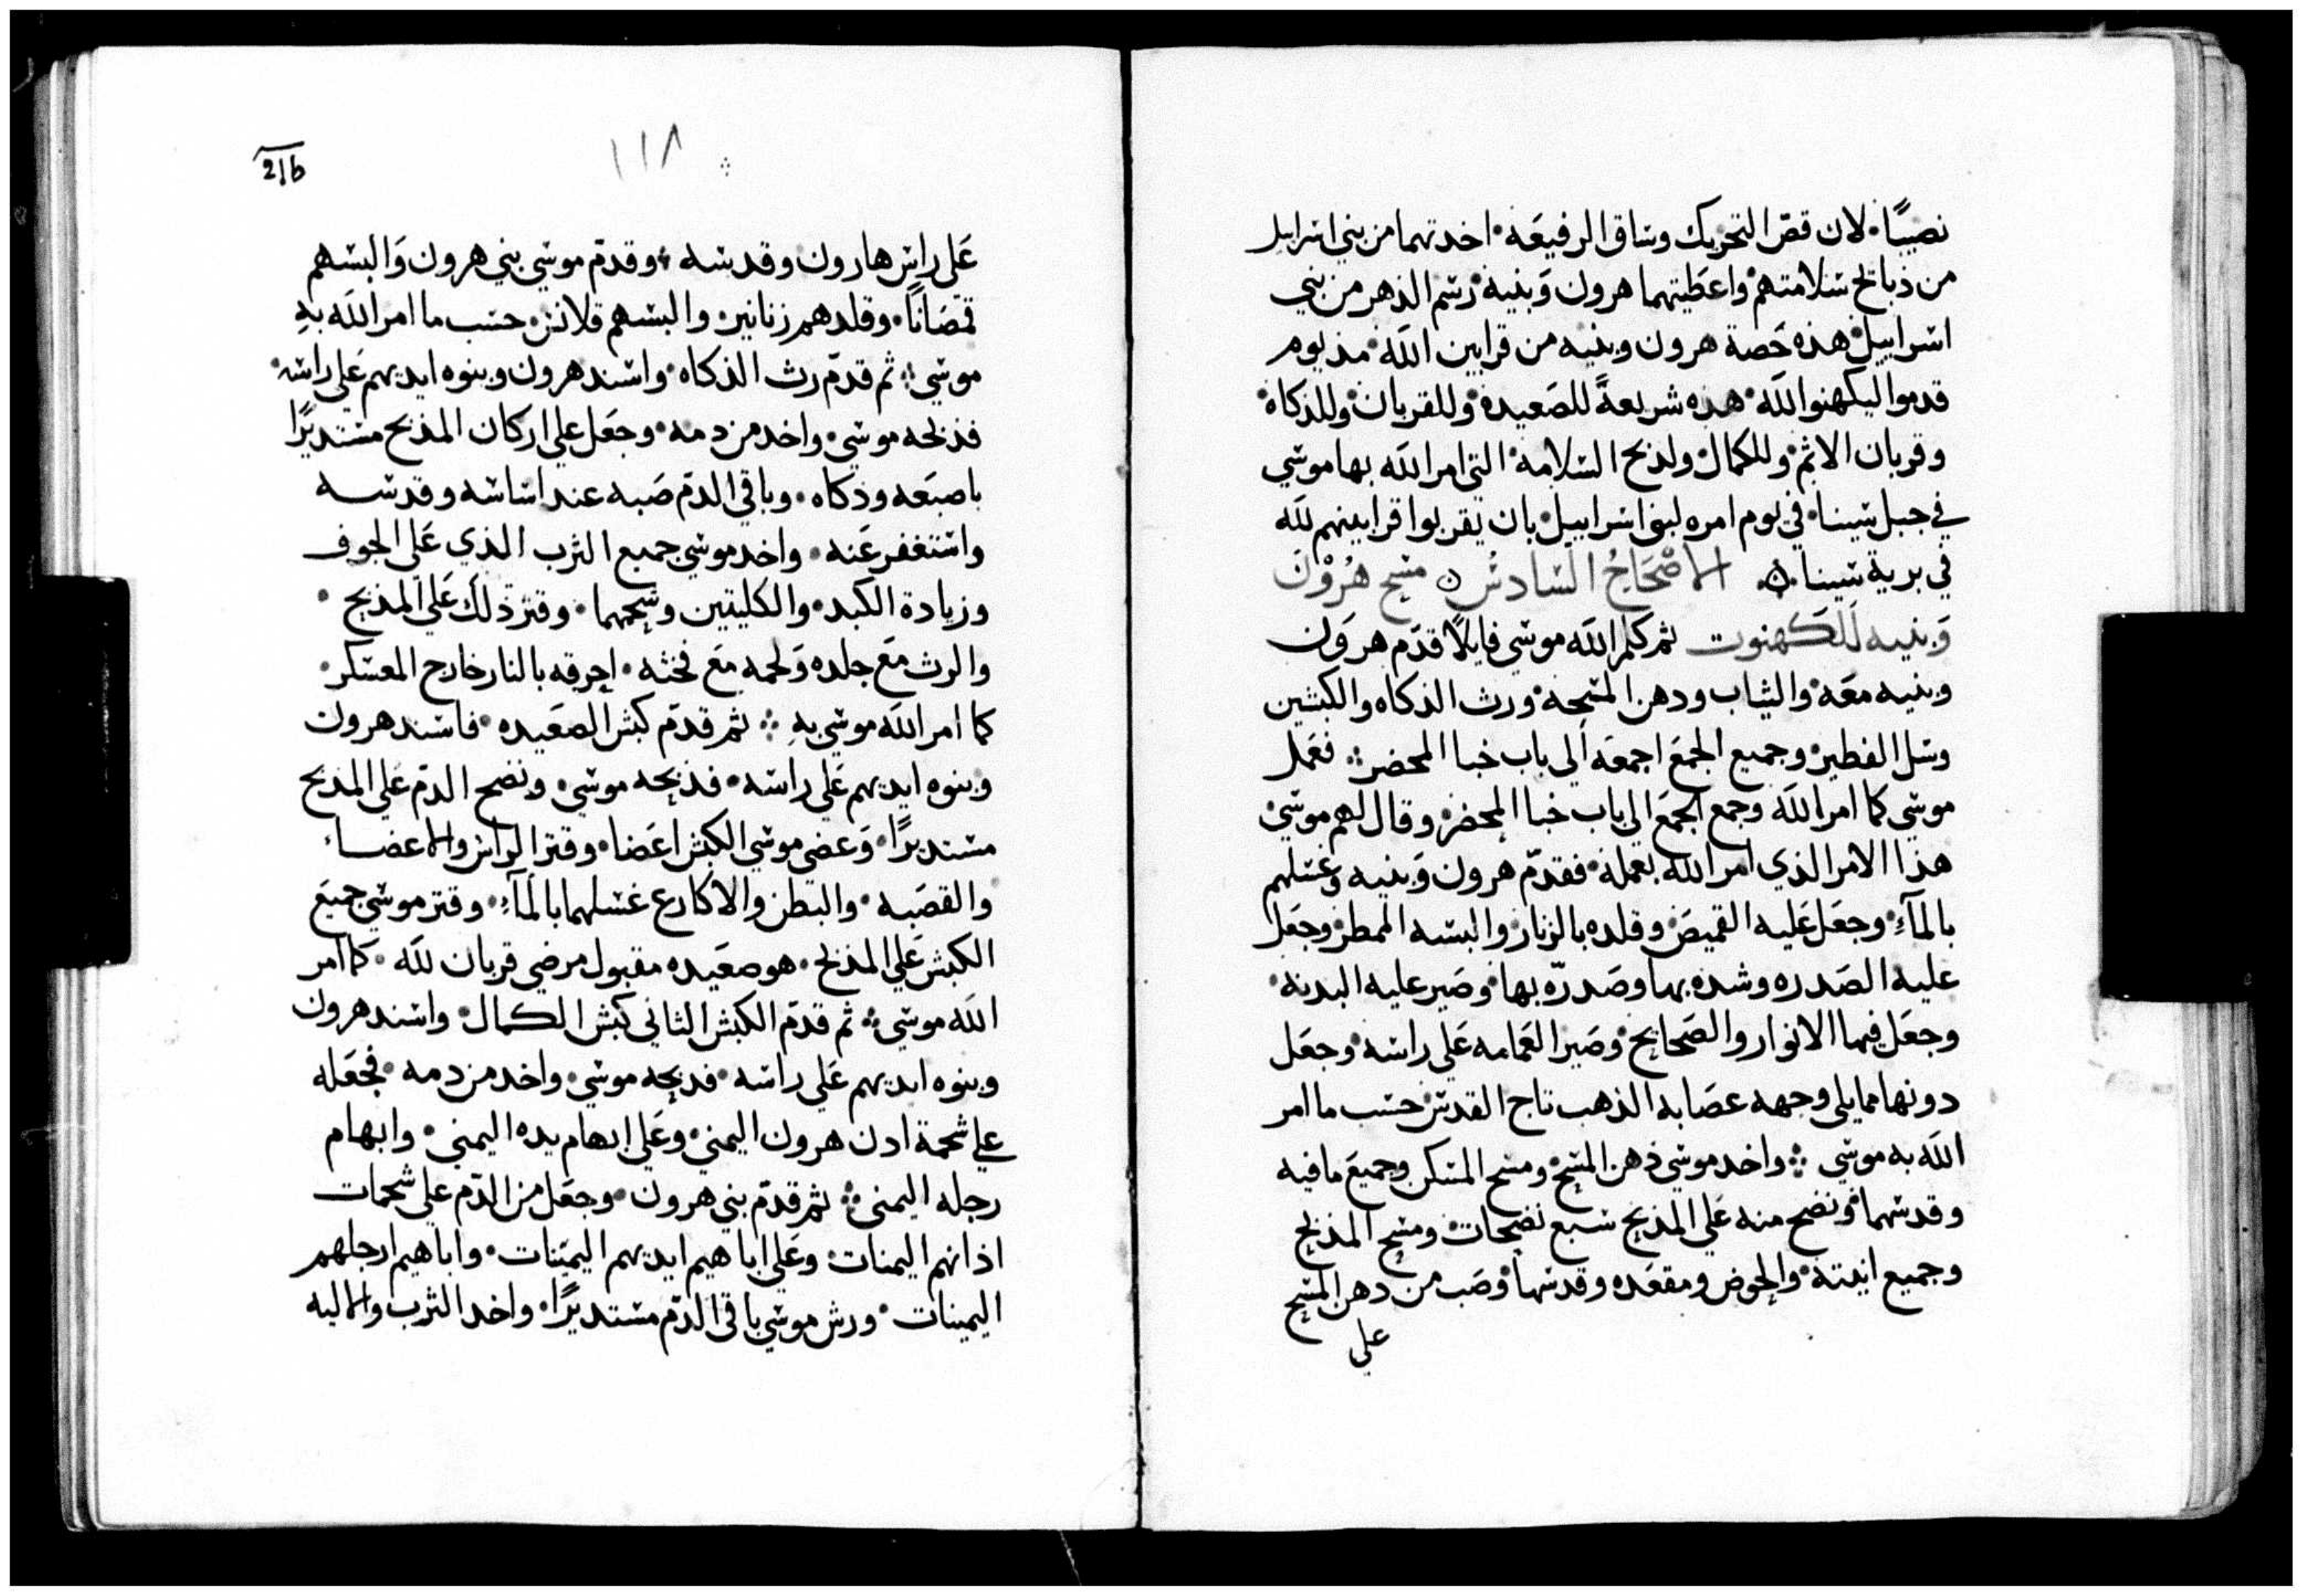 نصيبًا. لان قصّ التحريك وساق الرفيعَة. اخدتهما من بني اسراييل
من ذبايح سَلامتهم واعطَيتهما هرون وَبنيه رسم الدهر من بني
اسراييل. هذه حَصة هرون وبنيه من قرابين اللَه مذ يوم
قدموا ليكهنوا اللَه. هده شريعةً للصَعيده وللقربان وللذكاة
وقربان الاثم وللكمال ولدبح السَلامه التي امر اللَه بها موسي
في جبل سَينا. في يوم امره لبني اسراييل بان يقربوا قرابينهم للَه
في برية سَينا ن الاصْحَاحُ السَادسُ ن مسح هرُوْن
وَبنيه لَلكَهنوت ثم كلم اللَه موسي قايلاً قدم هرَون
وبنيه معَه والثياب ودهن المسَحه ورت الذكاه والكبشين
وسَل الفطير وجميع الجمعَ اجمعَه الي باب خبا المحضر فعَمل
موسي كما امر اللَه وجمع الجمعَ الي باب خبا المحضر وقال لهم موسي
هذا الامر الذي امر اللَه بعمله فقدّم هرون وَبنيه وغسَلهم
بالمآءِ وجعَل عَليه القميصَ وقلده بالزنار والبسَه الممطر وجعَل
عليه الصَدره وشده بها وصَدرّه بها وصَير عليه البدنه.
وجعَل فيها الانوار والصَحايح وصَير العَمامه عَلي راسَه وجعَل
دونها مما يلي وجهه عصَابه الذهب تاج القدس حسَب ما امر
اللَه به موسي ∴ واخد موسي دهن المسَح ومسَح المسَكن وجميعَ ما فيه
وقدسَهما ونضح منه عَلي المذبح سَبع نضحات ومسَح المذبح
وجميع انيته والحوض ومقعَده وقدسَها وصَب من دهن المسَح
علي
١١٨
216
عَلي راس هارون وقدسَه وقدّم موسي بني هرون وَالبسَهم
قمصَانًا. وقلدهم زنانير. والبسَهم قلانس حسَب ما امر اللَه بهِ
موسي ∴ ثم قدّم رث الذكاه واسَند هرون وبنوه ايديهم عَلي راسَه
فذبحه موسي. واخد من دمه. وجعَل علي اركان المذبح مسَتديرًا
باصبَعه وذكاه. وباقي الدم صَبه عند اسَاسَه وقدسَه
واسَتغفر عَنه. واخد موسي جميع الثرب الذي عَلي الجوف
وزيادة الكبد. والكليتين وشحمهما. وقتر ذلَك عَلي المذبح.
والرث معَ جلده وَلحمه معَ فحثه. احرقه بالنار خارج المعسَكر.
كما امر اللَه موسي بهِ ∴ ثم قدّم كبش الصَعَيده. فاسَند هرون
وبنوه ايديهم عَلي راسَه. فذبحه موسي. ونضح الدم عَلي المذبح
مسَتديرًا. وَعضى موسي الكبش اعَضا. وقتر الراس والاعضاء
والقصَبه. والبَطن والاكارع غسَلهما بالمآءِ. وقتر موسي جميعَ
الكبش عَلي المذبح. هو صعَيده مقبول مرضي قربان للَه. كما امر
اللَه موسي ∴ ثم قدّم الكبش الثاني كبش الكمال واسَند هرون
وبنوه ايديهم عَلي راسَه. فدبحه موسي. واخد من دمه. فجعَله
علي شحمة ادن هرون اليمني. وعَلي ابهام يده اليمني. وابهام
رجله اليمنى ∴ ثم قدّم بني هرون. وجعَل من الدّم علي شحمات
اذانهم اليمنات. وعَلي اباهيم ايديهم اليمَينات. واباهيم ارجلهم
اليمينات. ورش موسي باقي الدّم مسَتديرًا. واخد الثرب والاليه